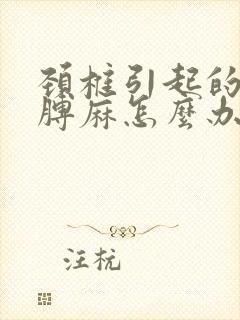 頸椎引起的
膊麻怎麼办
汪杭